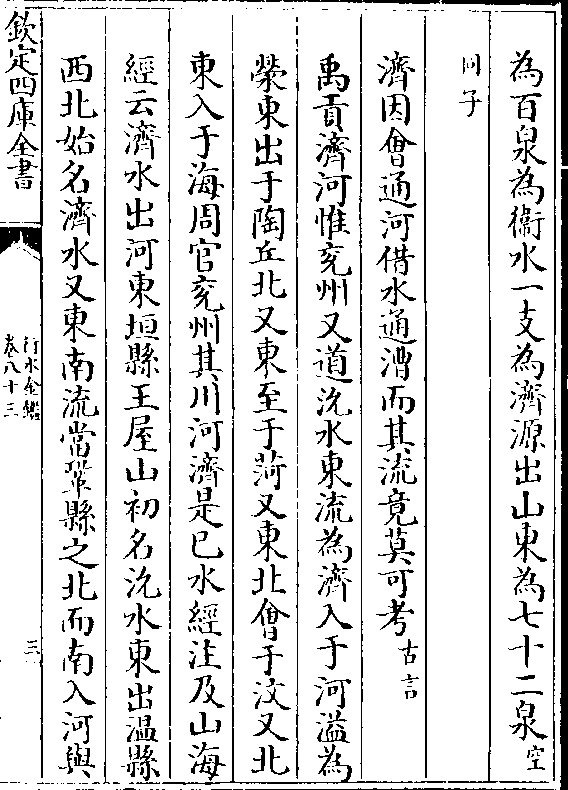 為百泉為衛水一支為濟源出山東為七十二泉空
同子
濟因會通河借水通漕而其流竟莫可考古言
禹貢濟河惟兖州又道沇水東流為濟入于河溢為
滎東出于陶丘北又東至于菏又東北會于汶又北
東入于海周官兖州其川河濟是已水經注及山海
經云濟水出河東垣縣王屋山初名沇水東出溫縣
西北始名濟水又東南流當鞏縣之北而南入河與
欽定四庫全書
行水金鑑
卷八十三
三